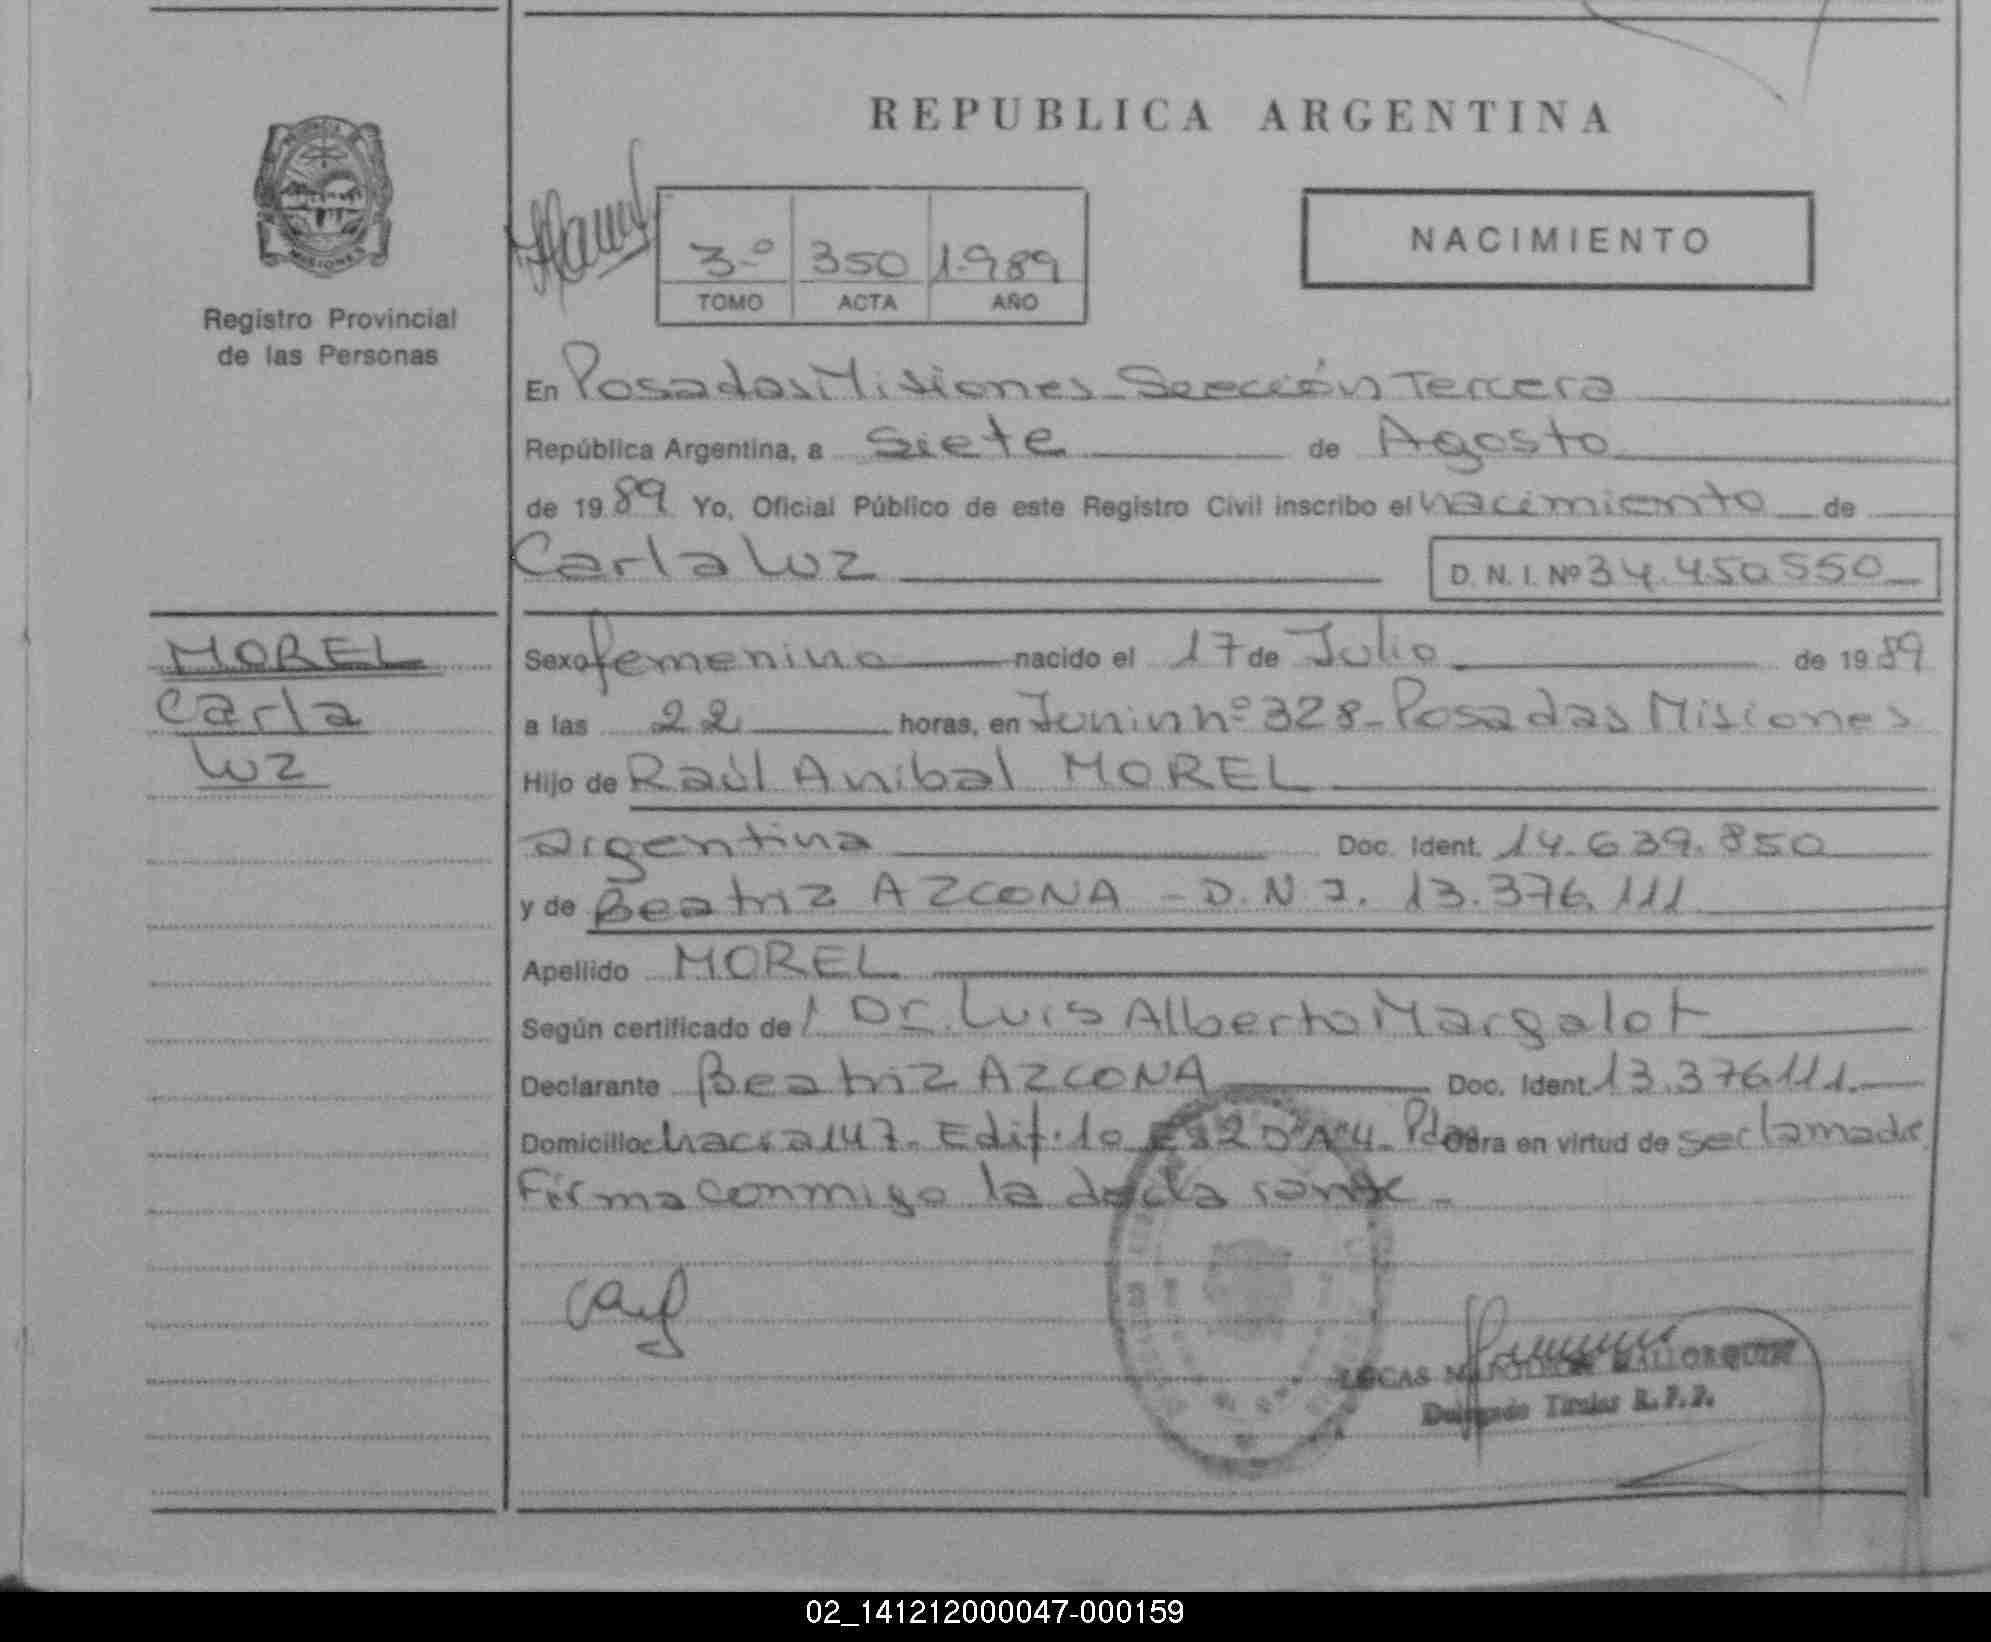 REPUBLICA ARGENTINA
MISIONES
Registro Provincial
de las Personas
3º 350 1.989
TOMO ACTA AÑO
NACIMIENTO
En Posadas Misiones - Sección Tercera
República Argentina, a siete de Agosto
de 19 89 Yo, Oficial Público de este Registro Civil inscribo el nacimiento de
Carla Luz D. N. I. Nº 34.450.550
MOREL
Carla
Luz
Sexo femenino nacido el 17 de Julio de 19 89
a las 22 horas, en Junin nº 328 - Posadas Misiones
Hijo de Raúl Anibal MOREL
argentina Doc. Ident. 14.639.850
y de Beatriz AZCONA - D.N.I. 13.376.111
Apellido MOREL
Según certificado de Dr. Luis Alberto Margalot
Declarante Beatriz AZCONA Doc. Ident. 13.376.111.
Domicilio chacra 147. Edif. 10 Es 2 Dº A º 4 - Pdas Obra en virtud de ser la madre
Firma conmigo la declarante -
LUCAS MALLORQUIN
Delegado Titular R.P.P.
02_141212000047-000159